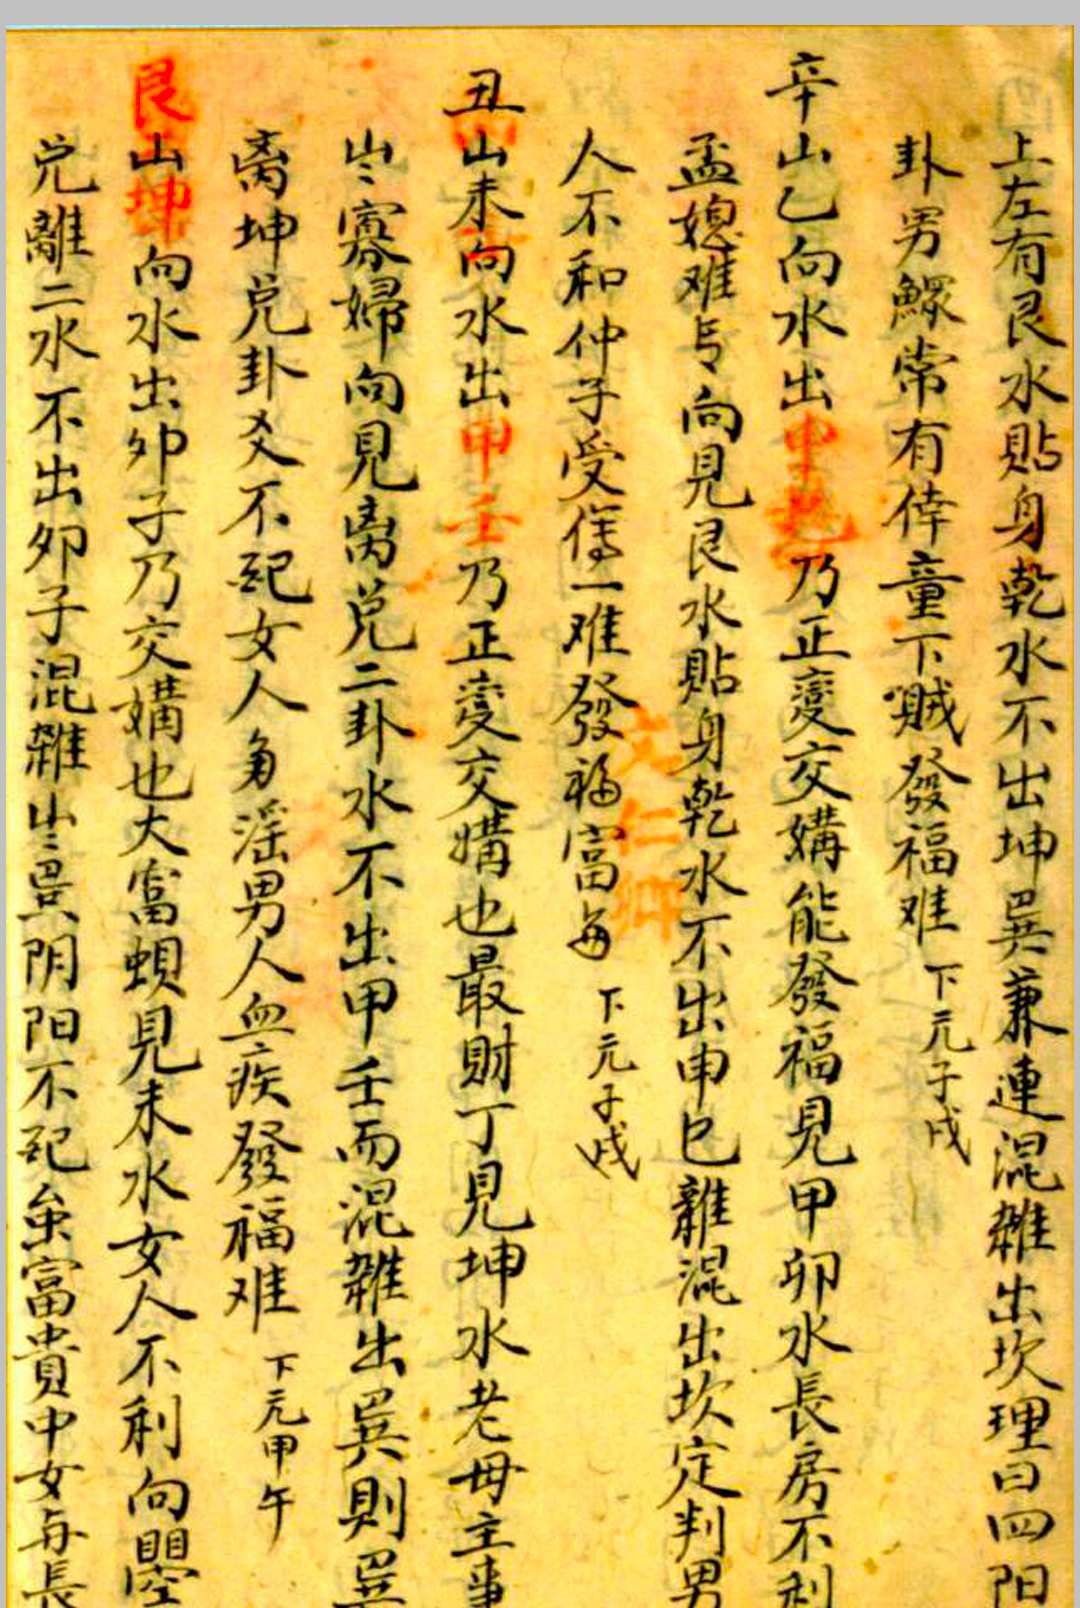 上左有艮水貼身乾水不出坤巽兼連混雜出坎理曰四阳
卦男鰥常有倖童下賊發福难 下元子戌
辛山乙向水出申乾乃正變交媾能發福見甲卯水長房不利
孟媳难与向見艮水貼身乾水不出申巳雜混出坎定判男
人不和仲子受傷一难發福富每 下元子戌
文仁卿
丑山未向水出甲壬乃正變交媾也最財丁見坤水老母主事
寡婦向見离兑二卦水不出甲壬而混雜出巽則巽
离坤兑卦爻不配女人多淫男人血疾發福难 下元甲午
艮山坤向水出卯子乃交媾也大富蜆見未水女人不利向
兑離二水不出卯子混雜巽阴阳不配富貴中女与長